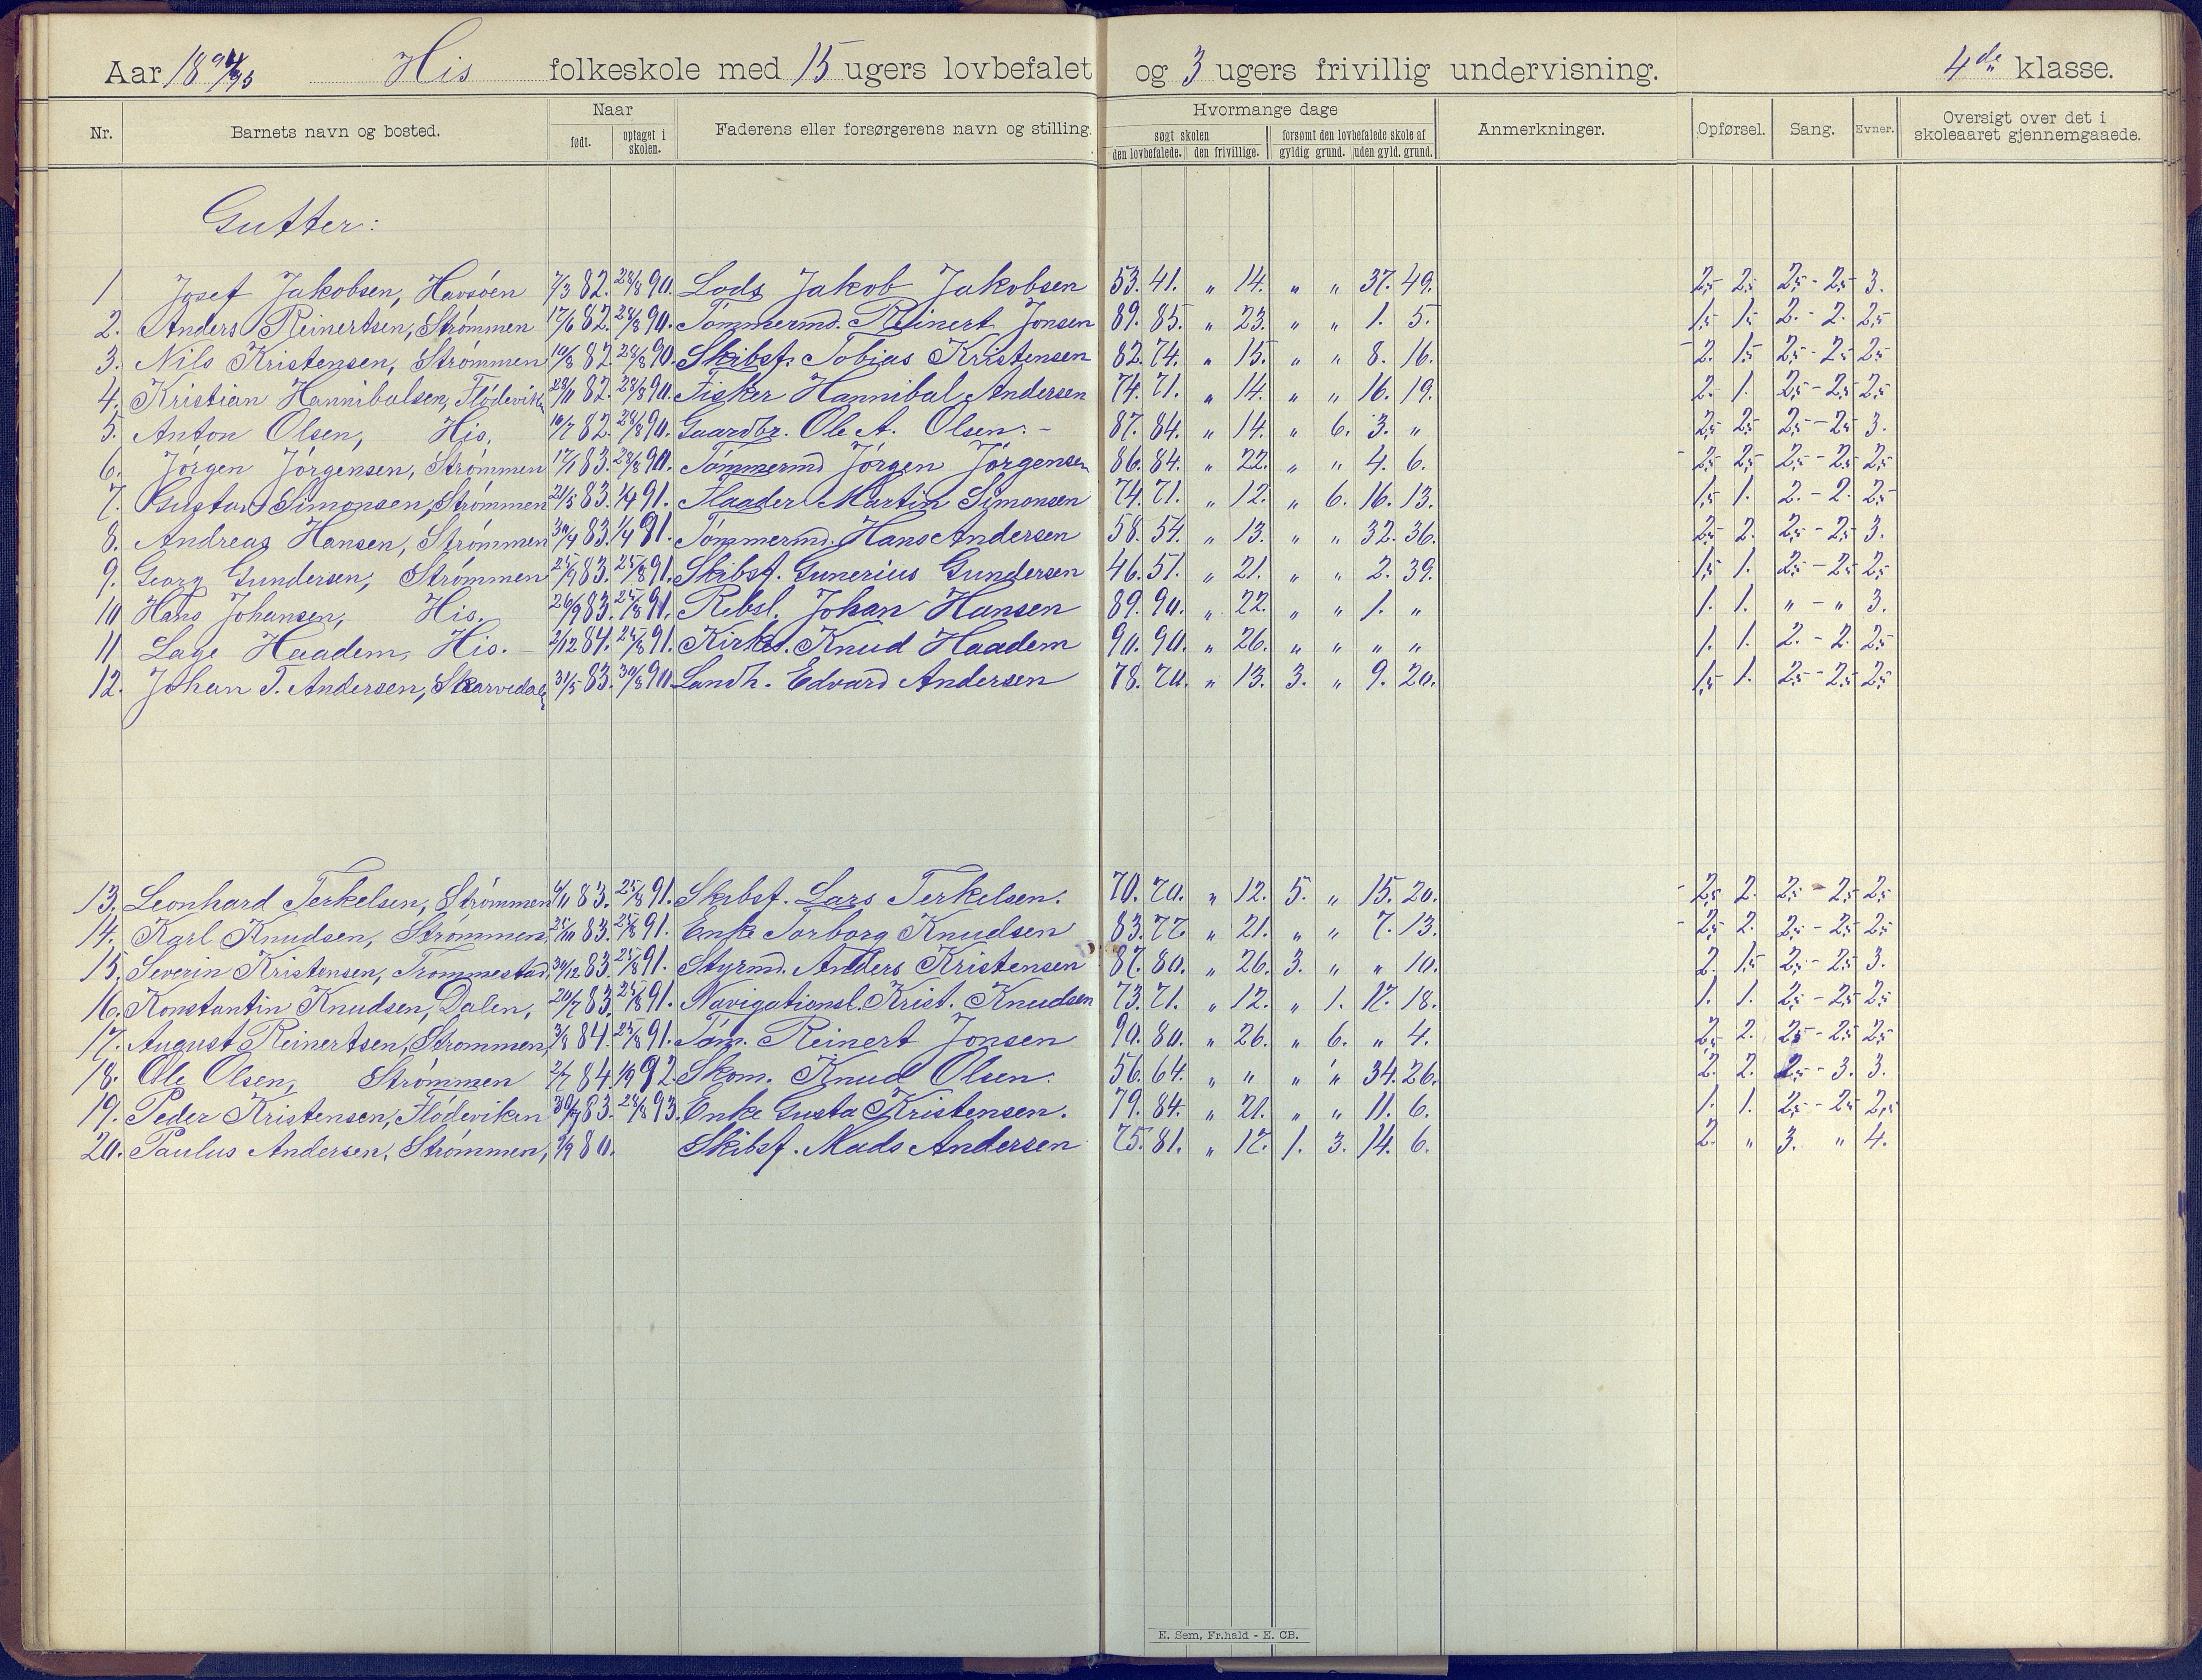 Aar 1894/95 His folkeskole med 15 ugers lovbefalet og 3 ugers frivillig undervisning. 4de klasse.
Nr. Barnets navn og bosted. Naar født. optaget i skolen. Faderens eller forsørgerens navn og stilling. Hvormange dage søgt skolen den lovbefalede. den frivillige. forsømt den lovbefalede skole af gyldig grund. uden gyld. grund. Anmerkninger. Opførsel. Sang. Evner. Oversigt over det i skoleaaret gjennemgaaede.
Gutter:
1 Josef Jakobsen, Havsöen 7/3 82. 28/8 90. Lods Jakob Jakobsen 53. 41. " 14. " " 37. 49. 2,5 2,5 2,5 - 2,5 3.
2. Anders Reinertsen, Strømmen 17/6 82. 28/8 90. Tømmermd. Reinert Jonsen 89. 85. " 23. " " 1. 5. 1,5 1,5 2. - 2. 2,5
3. Nils Kristensen, Strømmen 19/8 82. 28/8 90. Skibsf. Tobias Kristensen 82. 74. " 15. " " 8. 16. 2. 1,5 2,5 - 2,5 2,5
4. Kristian Hannibalsen, Flødeviken 28/11 82. 28/8 90. Fisker Hannibal Andersen 74. 71. " 14. " " 16. 19. 2. 1. 2,5 - 2,5 2,5
5. Anton Olsen, His, 10/7 82. 28/8 90. Gaardbr. Ole A. Olsen. - 87. 84. " 14. " 6. 3. " 2,5 2,5 2,5 - 2,5 3.
6. Jörgen Jörgensen, Strømmen 17/1 83. 28/8 90. Tømmermd Jörgen Jörgensen 86. 84. " 22. " " 4. 6. 2,5 2,5 2,5 - 2,5 2,5
7. Gustav Simonsen, Strømmen 21/5 83. 1/4 91. Flaader Martin Simonsen 74. 71. " 12. " 6. 16. 13. 1,5 1. 2. - 2. 2,5
8. Andreas Hansen, Strømmen 30/4 83. 1/4 91. Tømmermd. Hans Andersen 58. 54. " 13. " " 32. 36. 2,5 2. 2,5 - 2,5 3.
9. Georg Gundersen, Strømmen 25/9 83. 25/8 91. Skibsf. Gunerius Gundersen 46. 51. " 21. " " 2. 39. 1,5 1. 2,5 - 2,5 2,5
10 Hans Johansen, His. 26/9 83. 25/8 91. Rebsl. Johan Hansen 89. 90. " 22. " " 1. " 1. 1. " - " 3.
11 Lage Haadem, His. - 2/12 84. 25/8 91. Kirkes. Knud Haadem 90. 90. " 26. " " " " 1. 1. 2. - 2. 2,5
12. Johan T. Andersen, Skarvedalen 31/5 83. 30/8 90 Landh. Edvard Andersen 78. 70. " 13. 3. " 9. 20. 1,5 1. 2,5 - 2,5 2,5
13. Leonhard Terkelsen, Strømmen 6/11 83. 25/8 91. Skibsf. Lars Terkelsen. 70. 70. " 12. 5. " 15. 20. 2,5 2. 2,5 - 2,5 2,5
14. Karl Knudsen, Strømmen, 25/10 83. 25/8 91. Enke Torborg Knudsen 83. 77 " 21. " " 7. 13. 2,5 2. 2,5 - 2,5 2,5
15. Severin Kristensen, Trommestad, 30/12 83. 25/8 91. Styrmd. Anders Kristensen 87. 80. " 26. 3. " " 10. 2. 1,5 2,5 - 2,5 3.
16. Konstantin Knudsen, Dalen, 20/7 83. 25/8 91. Navigationsl. Krist. Knudsen 73. 71. " 12. " 1. 17. 18. 1. 1. 2,5 - 2,5 2,5
17. August Reinertsen, Strømmen, 3/8 84. 25/8 91. Tøm. Reinert Jonsen 90. 80. " 26. " 6. " 4. 2,5 2. 2,5 - 2,5 2,5
18. Ole Olsen, Strømmen 2/7 84. 92. Skom. Knud Olsen. 56. 64. " " " " 34. 26. 2. 2. 2,5 - 3. 3.
19. Peder Kristensen, Flødeviken 83. 28/8 93. Enke Gusta Kristensen. 79. 84. " 21. " " 11. 6. 1. 1. 2,5 - 2,5 2,5
20. Paulus Andersen, Strømmen, 80. Skibsf. Mads Andersen 75. 81. " 17. 1. 3. 14. 6. 2. " 3. " 4.
E. Sem, Fr.hald - E. CB.